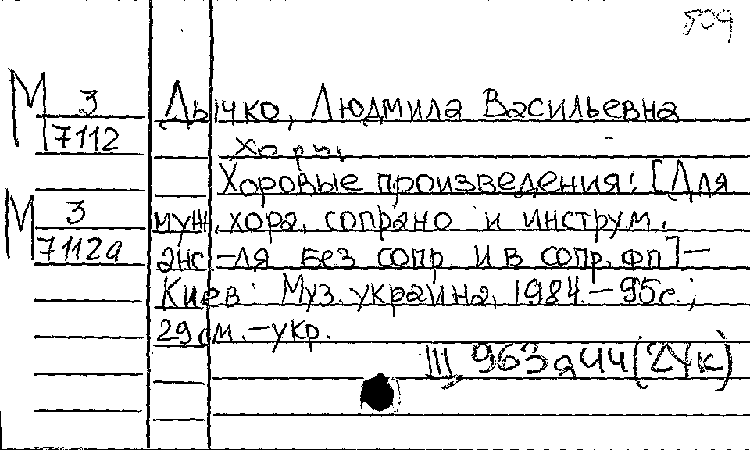 509
М 3 Дычко, Людмила Васильевна
7112 Хоры
Хоровые произведения: [Для
М 3 муж. хора, сопрано и инструм.
7112а анс-ля без сопр. и в сопр. фп]-
Киев: Муз. украина, 1984.-95с.;
29см.-укр.
III 963а44(2Ук)